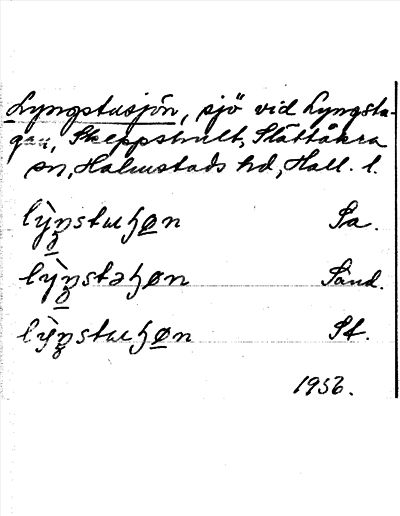 Lyngstusjön, sjö vid Lyngstu-
gan, Skeppshult, Slättåkra
sn, Halmstads hd, Hall. l.
lỳŋstuɧøn Sa.
lỳŋstəɧøn Sänd.
lỳŋstuɧøn St.
1956.